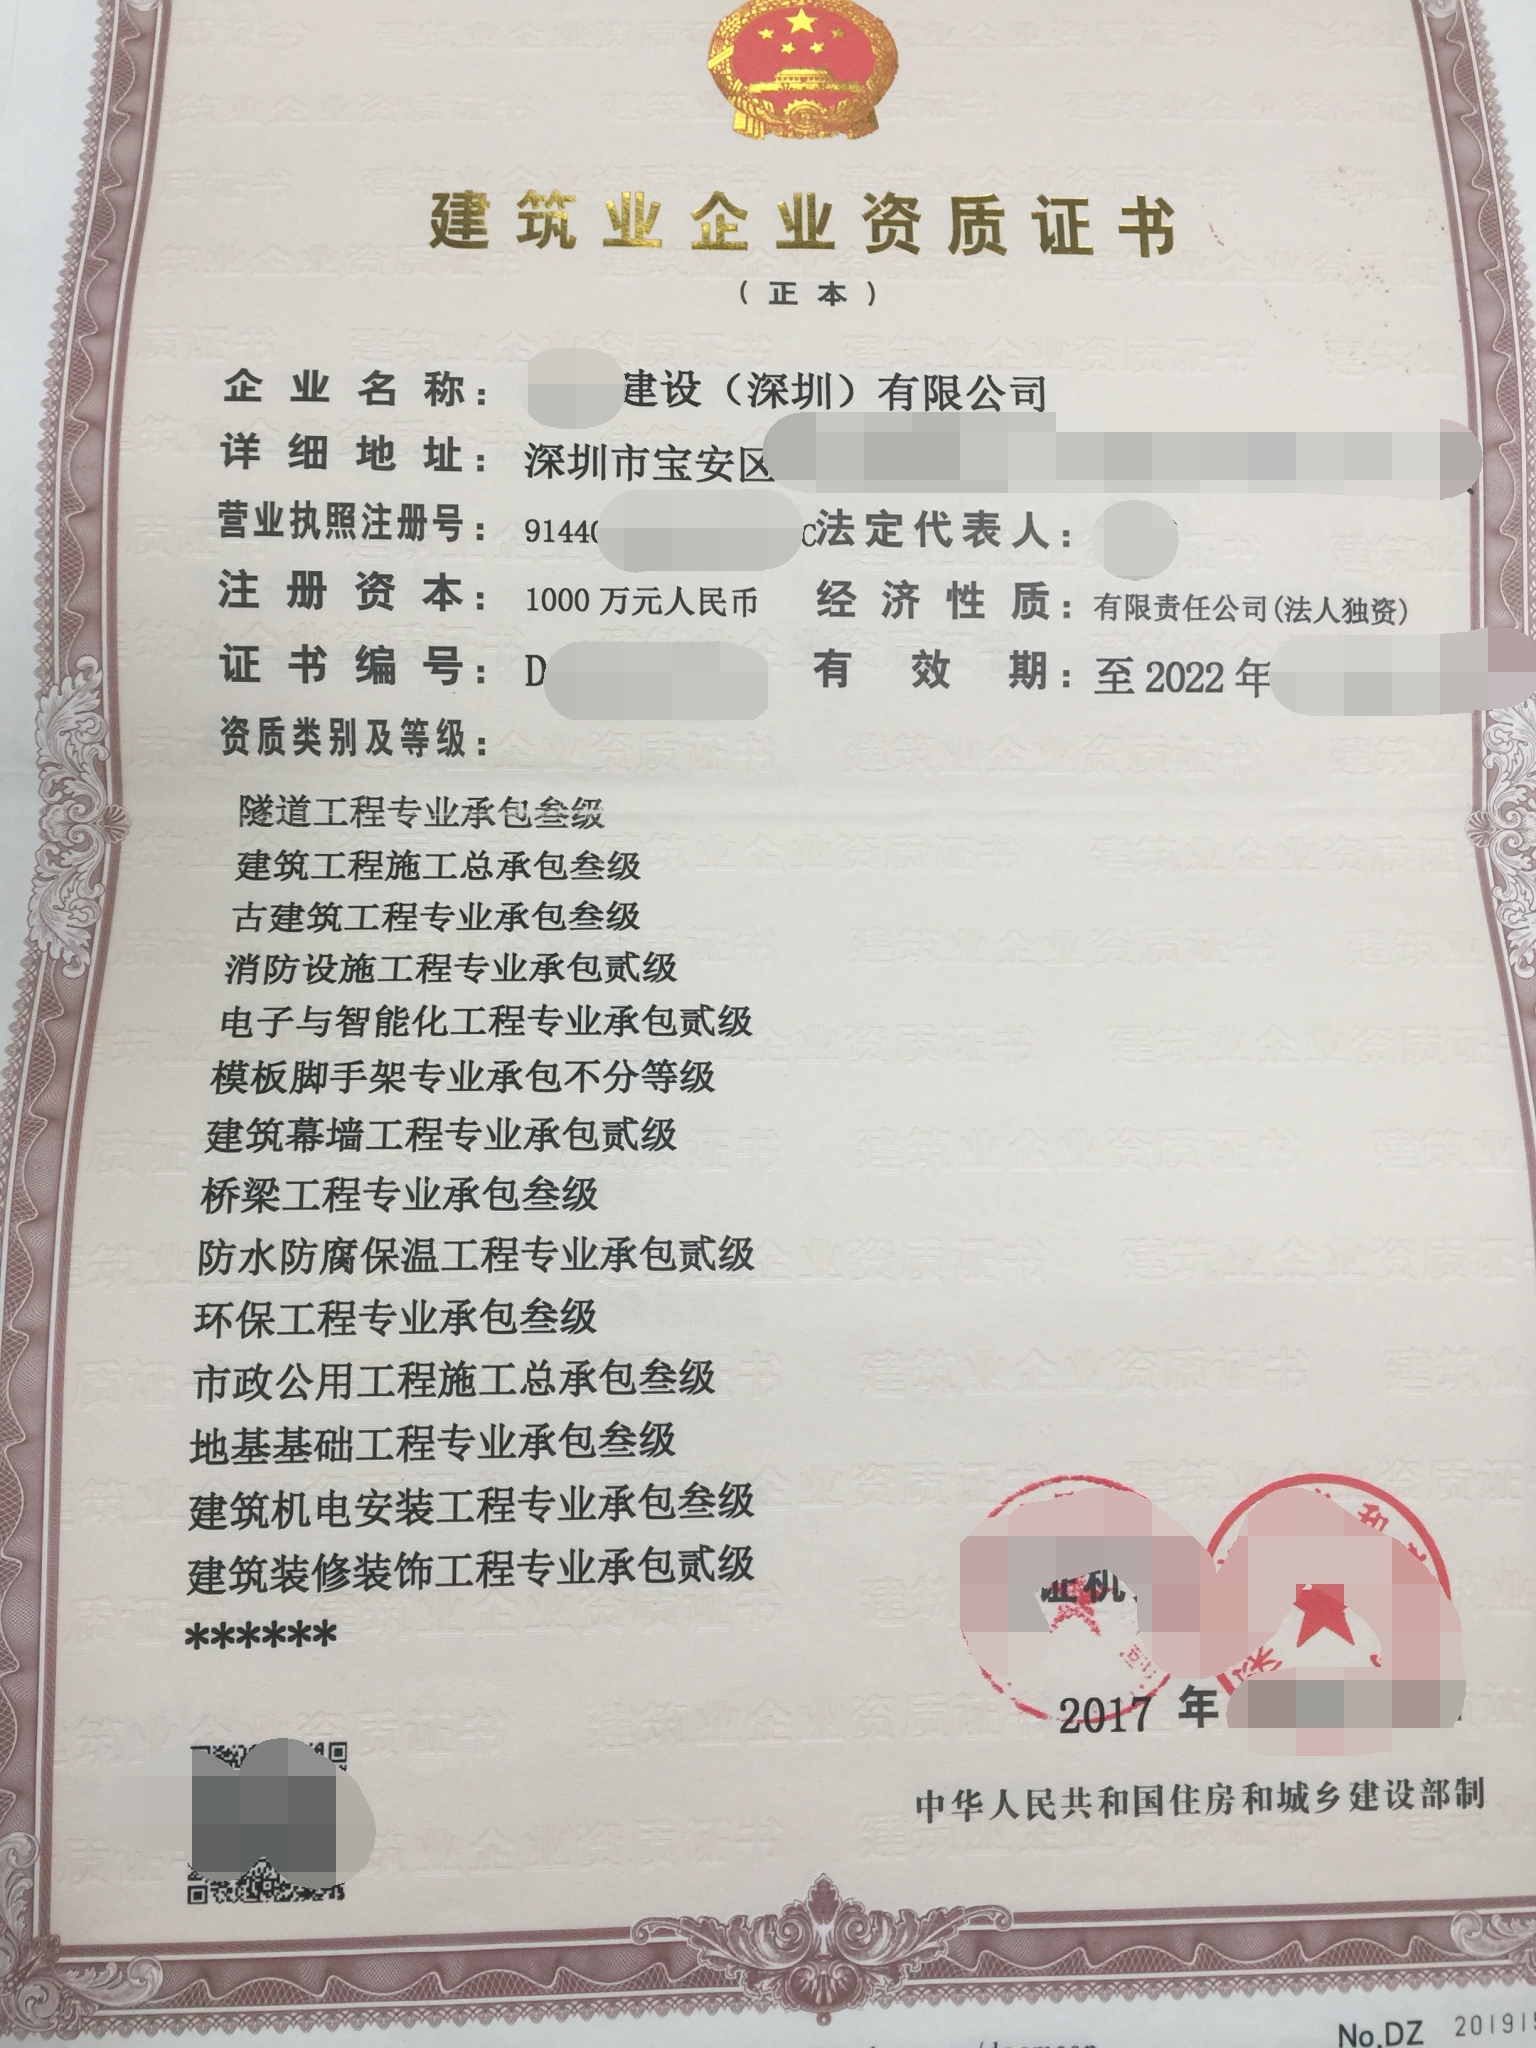 建筑业企业资质证书
(正本)
企业名称： 建设（深圳）有限公司
详细地址：深圳市宝安区
营业执照注册号：91440 C 法定代表人：
注册资本：1000万元人民币 经济性质：有限责任公司(法人独资)
证书编号：D 有效期：至2022年
资质类别及等级：
隧道工程专业承包叁级
建筑工程施工总承包叁级
古建筑工程专业承包叁级
消防设施工程专业承包贰级
电子与智能化工程专业承包贰级
模板脚手架专业承包不分等级
建筑幕墙工程专业承包贰级
桥梁工程专业承包叁级
防水防腐保温工程专业承包贰级
环保工程专业承包叁级
市政公用工程施工总承包叁级
地基基础工程专业承包叁级
建筑机电安装工程专业承包叁级
建筑装修装饰工程专业承包贰级
******
证机
2017 年
中华人民共和国住房和城乡建设部制
No.DZ 201915